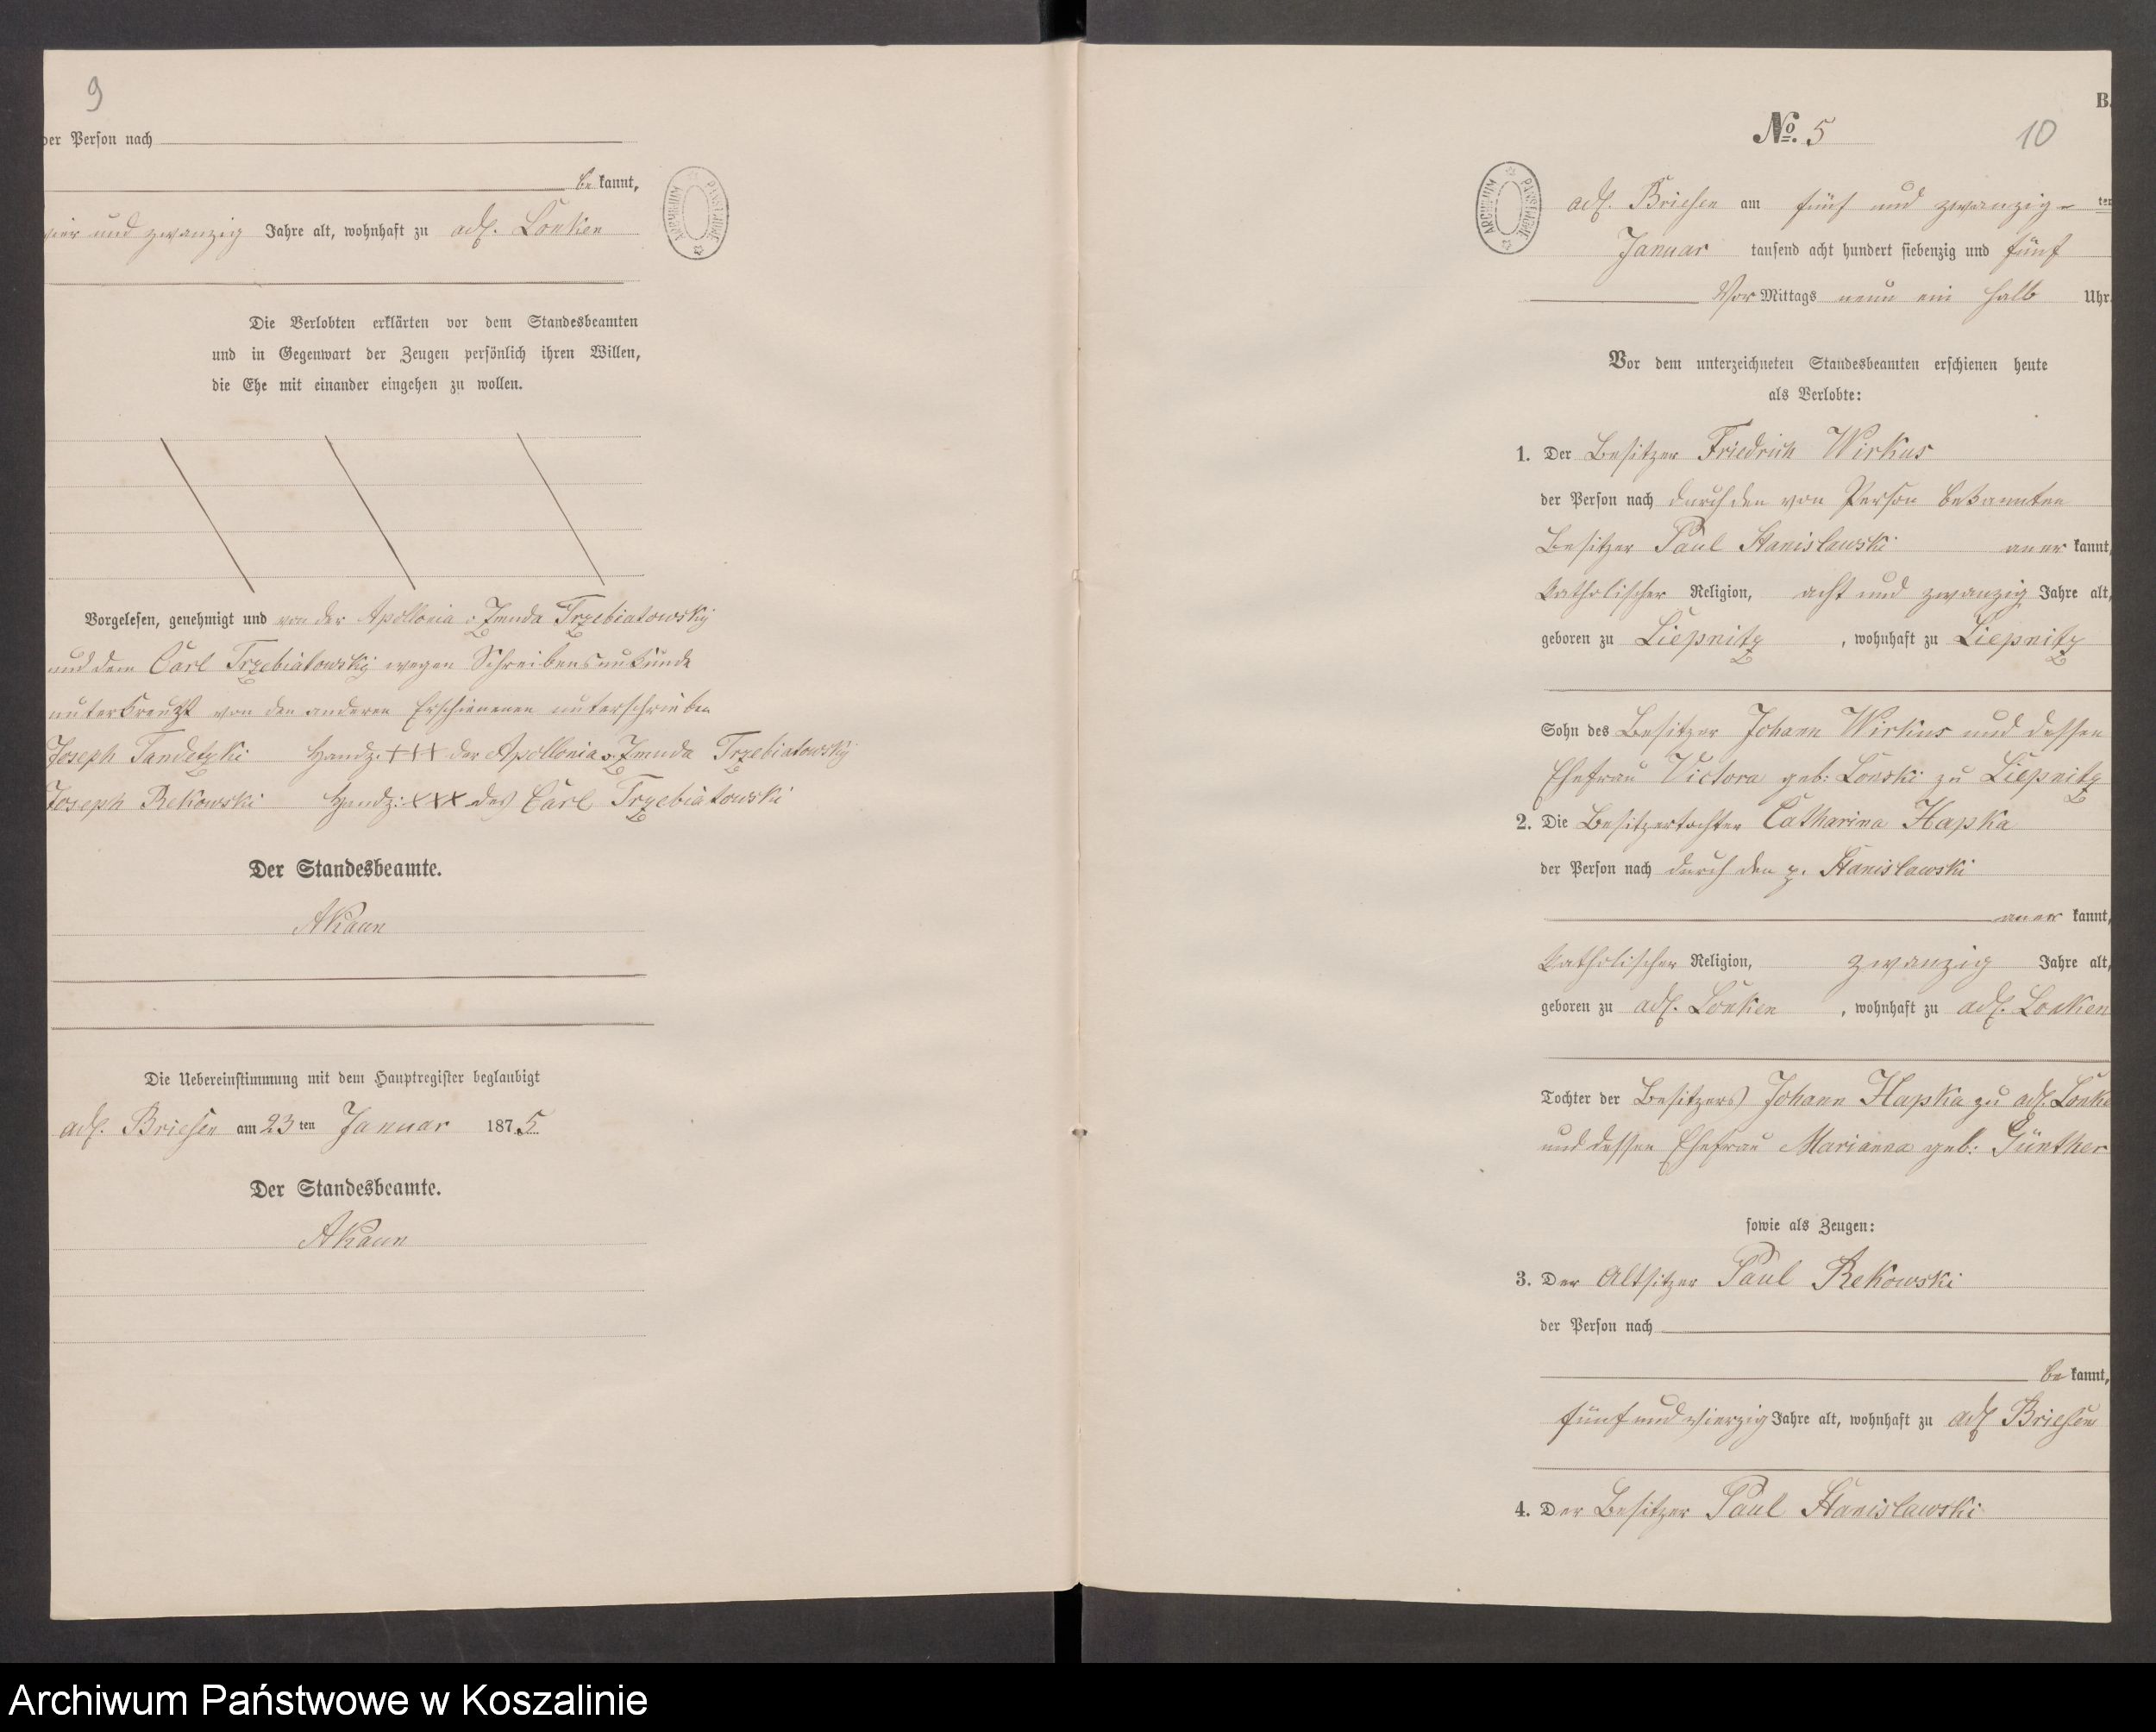 9
der Person nach
be kannt,
vier und zwanzig Jahre alt, wohnhaft zu adl. Lonken
ARCHIWUM PAŃSTWOWE
Die Verlobten erklärten vor dem Standesbeamten
und in Gegenwart der Zeugen persönlich ihren Willen,
die Ehe mit einander eingehen zu wollen.
Vorgelesen, genehmigt und von der Apollonia v. Zmuda Trzebiatowsky
und dem Carl Trzebiatowsky wegen Schreibensunkunde
unterkreuzt von den anderen Erschienenen unterschrieben
Joseph Tandetzki Handz. +++ der Apollonia v. Zmuda Trzebiatowsky
Joseph Rekowski Handz: xxx des Carl Trzebiatowski
Der Standesbeamte.
AKaun
Die Uebereinstimmung mit dem Hauptregister beglaubigt
adl. Briesen am 23 ten Januar 1875
Der Standesbeamte.
AKaun
B.
No. 5
10
ARCHIWUM PAŃSTWOWE
adl. Briesen am fünf und zwanzig- ten
Januar tausend acht hundert siebenzig und fünf
Vor Mittags neun ein halb Uhr.
Vor dem unterzeichneten Standesbeamten erschienen heute
als Verlobte:
1. Der Besitzer Friedrich Wirkus
der Person nach durch den von Person bekannten
Besitzer Paul Stanislawski aner kannt,
katholischer Religion, acht und zwanzig Jahre alt,
geboren zu Liepnitz, wohnhaft zu Liepnitz
Sohn des Besitzer Johann Wirkus und dessen
Ehefrau Victora geb: Lonski zu Liepnitz
2. Die Besitzertochter Catharina Hapka
der Person nach durch den p. Stanislawski
aner kannt,
katholischer Religion, zwanzig Jahre alt,
geboren zu adl. Lonken, wohnhaft zu adl. Lonken
Tochter der Besitzers Johann Hapka zu adl. Lonke
und dessen Ehefrau Marianna geb: Günther
sowie als Zeugen:
3. Der Altsitzer Paul Rekowski
der Person nach
be kannt,
fünf und vierzig Jahre alt, wohnhaft zu adl Briesen
4. Der Besitzer Paul Stanislawski
Archiwum Państwowe w Koszalinie